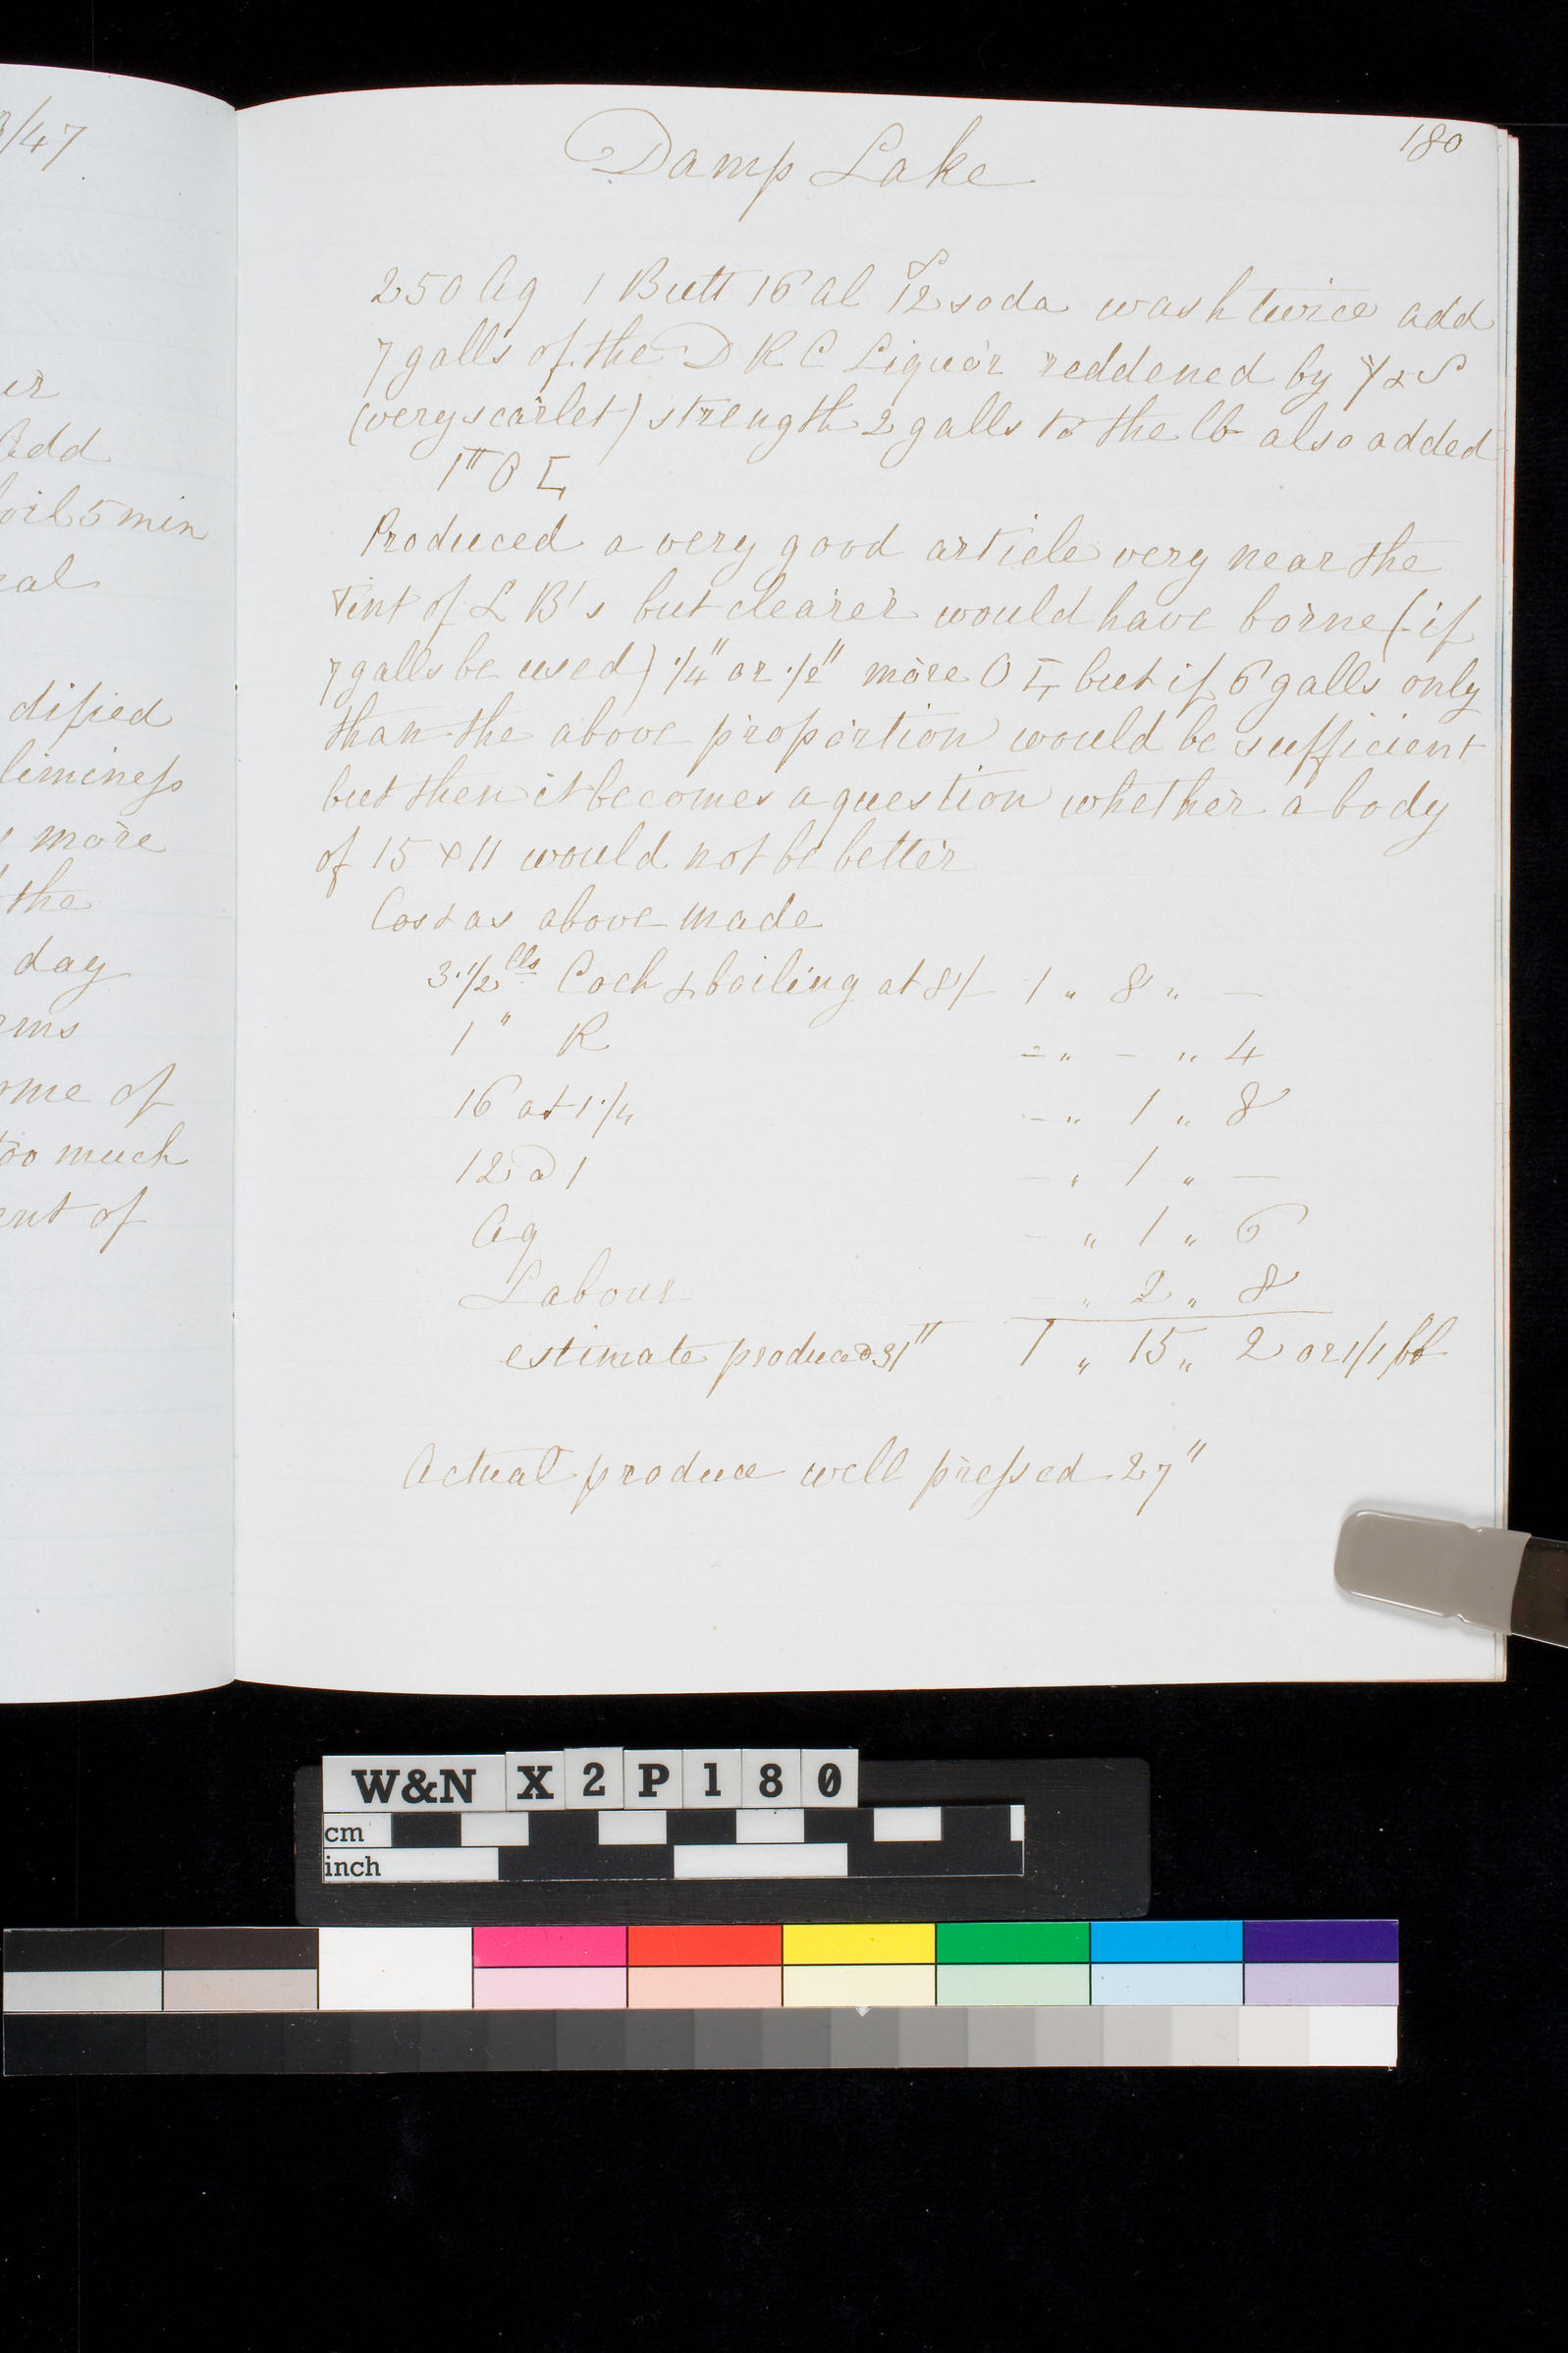 3/47
er
Add
oil 5 min
eal
dified
liminess
s more
the
day
rms
ome of
too much
ent of
180
Damp Lake
250 Ag 1 Butt 16 al 12 soda wash twice add
7 galls of the D R C Liquor reddened by 1/2 S
(very scarlet) strength 2 galls to the lb also added
1" O
Produced a very good article very near the
Tint of L B's but clearer would have borne (if
7 galls be used) 1/4" or 1/2" more O but if 6 galls only
than the above proportion would be sufficient
but then it becomes a question whether a body
of 15 & 11 would not be better
Cost as above made
3 1/2 lbs Coch & boiling at 8/- 1 " 8 " —
1 " R - " - " 4
16 at 1 1/4 - " 1 " 8
12 a 1 - " 1 " —
Ag - " 1 " 6
Labour - " 2 " 8
estimate produce 31" 1 " 15 " 2 or 1/1 lb
Actual produce well pressed 27"
W&N X2P180
cm
inch